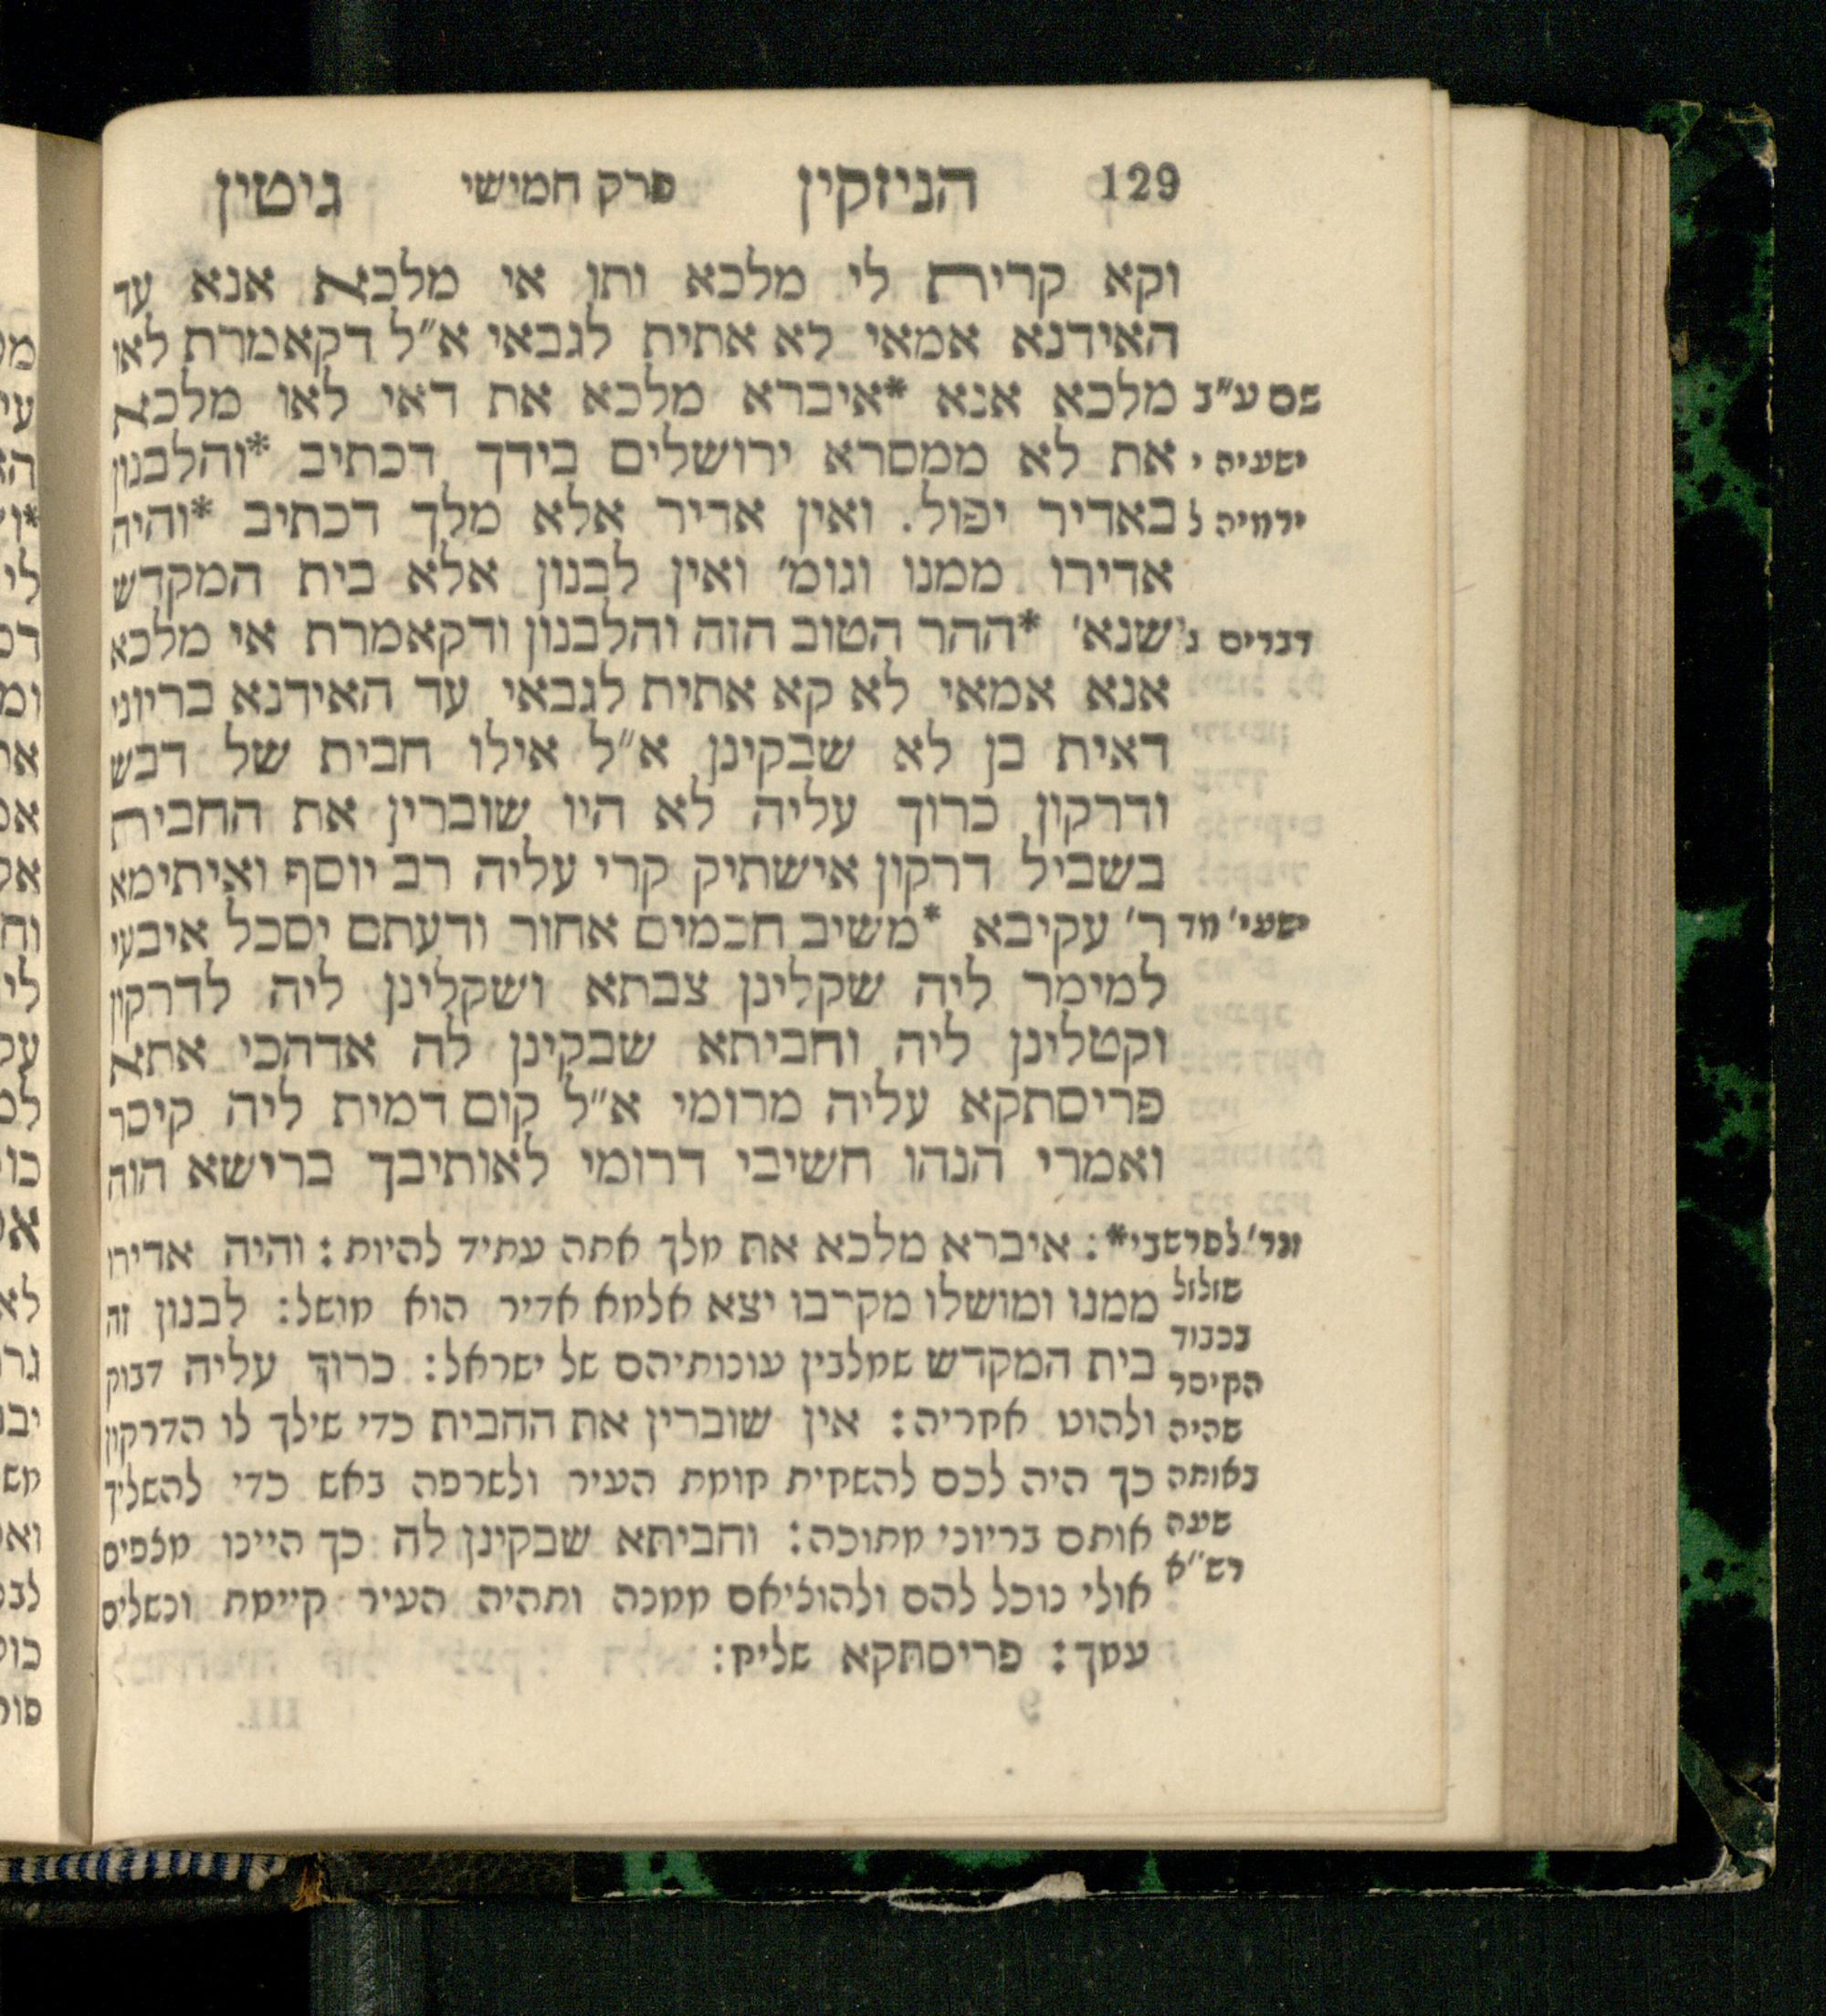 129 הניזקין פרק חמישי גיטין
וקא קרית לי מלכא ותו אי מלכא אנא עד
האידנא אמאי לא אתית לגבאי א״ל דקאמרת לאו
שם ע״ב מלכא אנא *איברא מלכא את דאי לאו מלכא
ישעיה י את לא ממסרא ירושלים בידך דכתיב *והלבנון
ירמיה ל באדיר יפול. ואין אדיר אלא מלך דכתיב *והיה
אדירו ממנו וגומ׳ ואין לבנון אלא בית המקדש
דברים ג שנא׳ *ההר הטוב הזה והלבנון ודקאמרת אי מלכא
אנא אמאי לא קא אתית לגבאי עד האידנא בריוני
דאית בן לא שבקינן א״ל אילו חבית של דבש
ודרקון כרוך עליה לא היו שוברין את החבית
בשביל דרקון אישתיק קרי עליה רב יוסף ואיתימא
ישעי׳ מד ר׳ עקיבא *משיב חכמים אחור ודעתם יסכל איבעי
למימר ליה שקלינן צבתא ושקלינן ליה לדרקון
וקטלינן ליה וחביתא שבקינן לה אדהכי אתא
פריסתקא עליה מרומי א״ל קום דמית ליה קיסר
ואמרי הנהו חשיבי דרומי לאותיבך ברישא הוה
איברא מלכא את מלך אתה עתיד להיות: והיה אדירו
שזלזל ממנו ומושלו מקרבו יצא אלמא אדיר הוא מושל: לבנון זה
בכבוד
הקיסר בית המקדש שמלבין עונותיהם של ישראל: כרוך עליה דבוק
שהיה ולהוט אחריה: אין שוברין את החבית כדי שילך לו הדרקון
באותה כך היה לכם להשחית חומת העיר ולשרפה באש כדי להשליך
שעה אותם בריוני מתוכה: וחביתא שבקינן לה כך היינו מצפים
רש״א אולי נוכל להם ולהוציאם ממנה ותהיה העיר קיימת ונשלים
עמך: פריסתקא שליח: